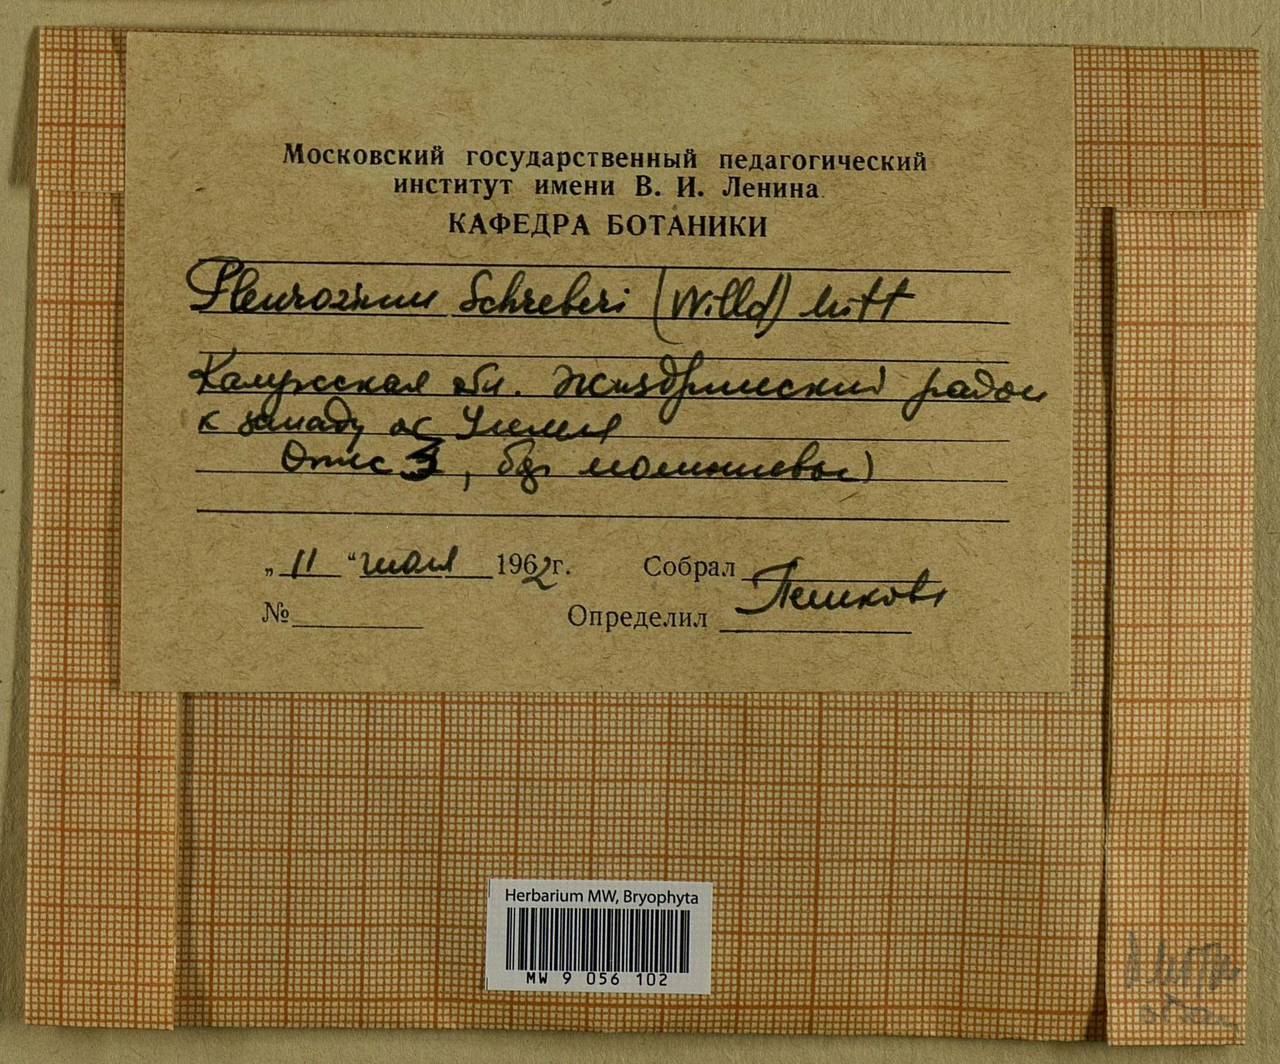 Московский государственный педагогический
институт имени В. И. Ленина
КАФЕДРА БОТАНИКИ
Pleurozium Schreberi (Willd) Mitt
Калужская обл. Жиздринский район
к западу ос
Опис 3, бер молиниевый
„ 11 “ июля 1962 г. Собрал
№ Определил Пешкова
Herbarium MW, Bryophyta
MW 9 056 102